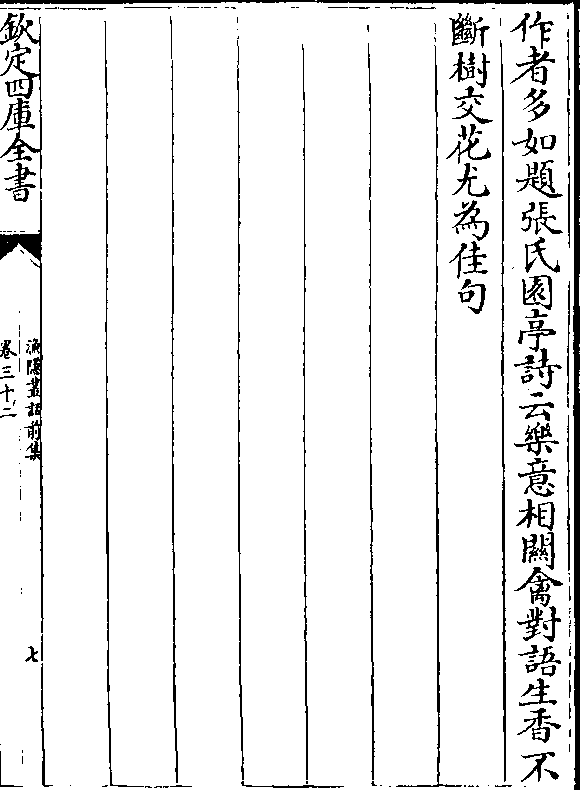 作者多如題張氏園亭詩云樂意相關禽對語生香不
斷樹交花尤為佳句
欽定四庫全書
漁隱叢話前集
卷三十二
七